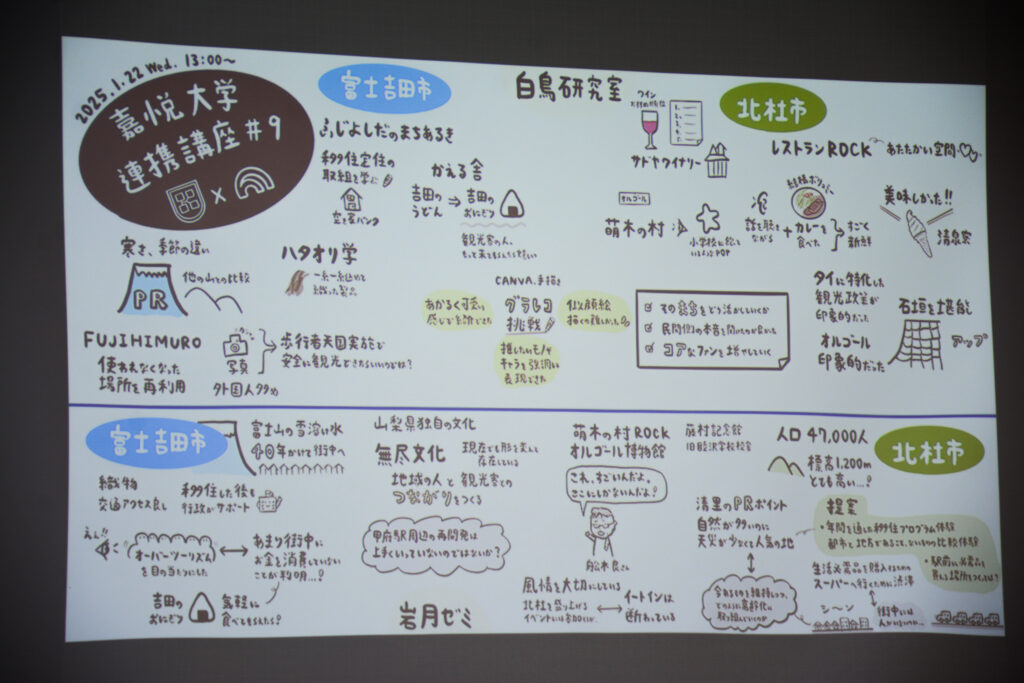 2025.1.22 Wed. 13:00〜
嘉悦大学
連携講座 #9
富士吉田市
白鳥研究室
北杜市
ふじよしだのまちあるき
移住定住の
取組を学ぶ
空き家バンク
かえる舎
吉田の
うどん
吉田の
おにぎり
観光客の人、
ワイン
サドヤワイナリー
レストランROCK
あたたかい空間
オルゴール
萌木の村
話を聴き
ながら
+カレーを
食べた
すごく
新鮮
美味しかった!!
清泉寮
寒さ、季節の違い
PR
他の山との比較
ハタオリ学
織った製品
CANVA、手描き
グラレコ
挑戦
あかるく可愛い
似顔絵
描くの難しかった
推したいモノや
キャラを強調し
表現できた
民間側の本音を聞けたのが良かった
コアなファンを増やしていく
タイに特化した
観光政策が
印象的だった
オルゴール
印象的だった
石垣を堪能し
アップ
FUJIHIMURO
使われなくなった
場所を再利用
写真
外国人多め
歩行者天国実施で
安全に観光できたらいいのでは?
富士吉田市
富士山の雪溶け水
40年かけて街中へ
織物
交通アクセス良し
移住した後も
行政がサポート
えん!!
オーバーツーリズム
を目の当たりにした
あまり街中に
お金を消費していない
ことが判明…?
吉田の
おにぎり
気軽に
食べてもらえたら?
山梨県独自の文化
無尽文化
現在でも形を変えて
存在している
地域の人と観光客との
つながりをつくる
甲府駅周辺の再開発は
上手くいっていないのではないか?
岩月ゼミ
萌木の村ROCK
オルゴール博物館
これ、すごいんだよ。
ここにしかないんだよ!
舩木良さん
風情を大切にしている
北杜を盛り上げる
イベントには参加してほしい
イートインは
断わっている
藤村記念館
旧睦沢学校校舎
人口 47,000人
北杜市
標高1,200m
とても高い…?
清里のPRポイント
自然が多いのに
天災が少なくて人気の地
提案
・年間を通した移住プログラム体験
生活必需品を購入するため
スーパーへ行くために渋滞
今あるものを維持しつつ、
どのように高齢化に
取り組んでいくのか
シ〜ン
街中には
人がいないのに…